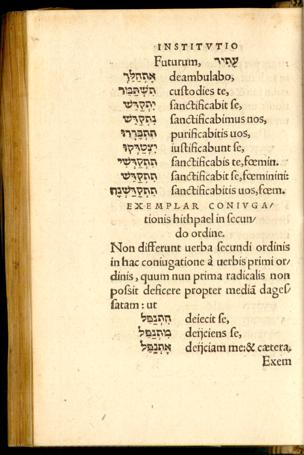 INSTITVTIO
Futurum, עָתִיד
אֶתְהַלֵּךְ deambulabo,
תִּשְׁתַּמֵּר custodies te,
יִתְקַדֵּשׁ sanctificabit se,
נִתְקַדֵּשׁ sanctificabimus nos,
תִּתְבָּרְרוּ purificabitis uos,
יִצְטַדְּקוּ iustificabunt se,
תִּתְקַדְּשִׁי sanctificabis te, fœmin.
תִּתְקַדֵּשׁ sanctificabit se, fœminini:
תִּתְקַדֵּשְׁנָה sanctificabitis uos, fœm.
EXEMPLAR CONIVGA/
tionis hithpael in secun/
do ordine.
Non differunt uerba secundi ordinis
in hac coniugatione à uerbis primi or/
dinis, quum nun prima radicalis non
possit deficere propter mediā dageſ
satam: ut
הִתְנַפֵּל deiecit se,
מִתְנַפֵּל deijciens se,
אֶתְנַפֵּל deijciam me: & cætera,
Exem